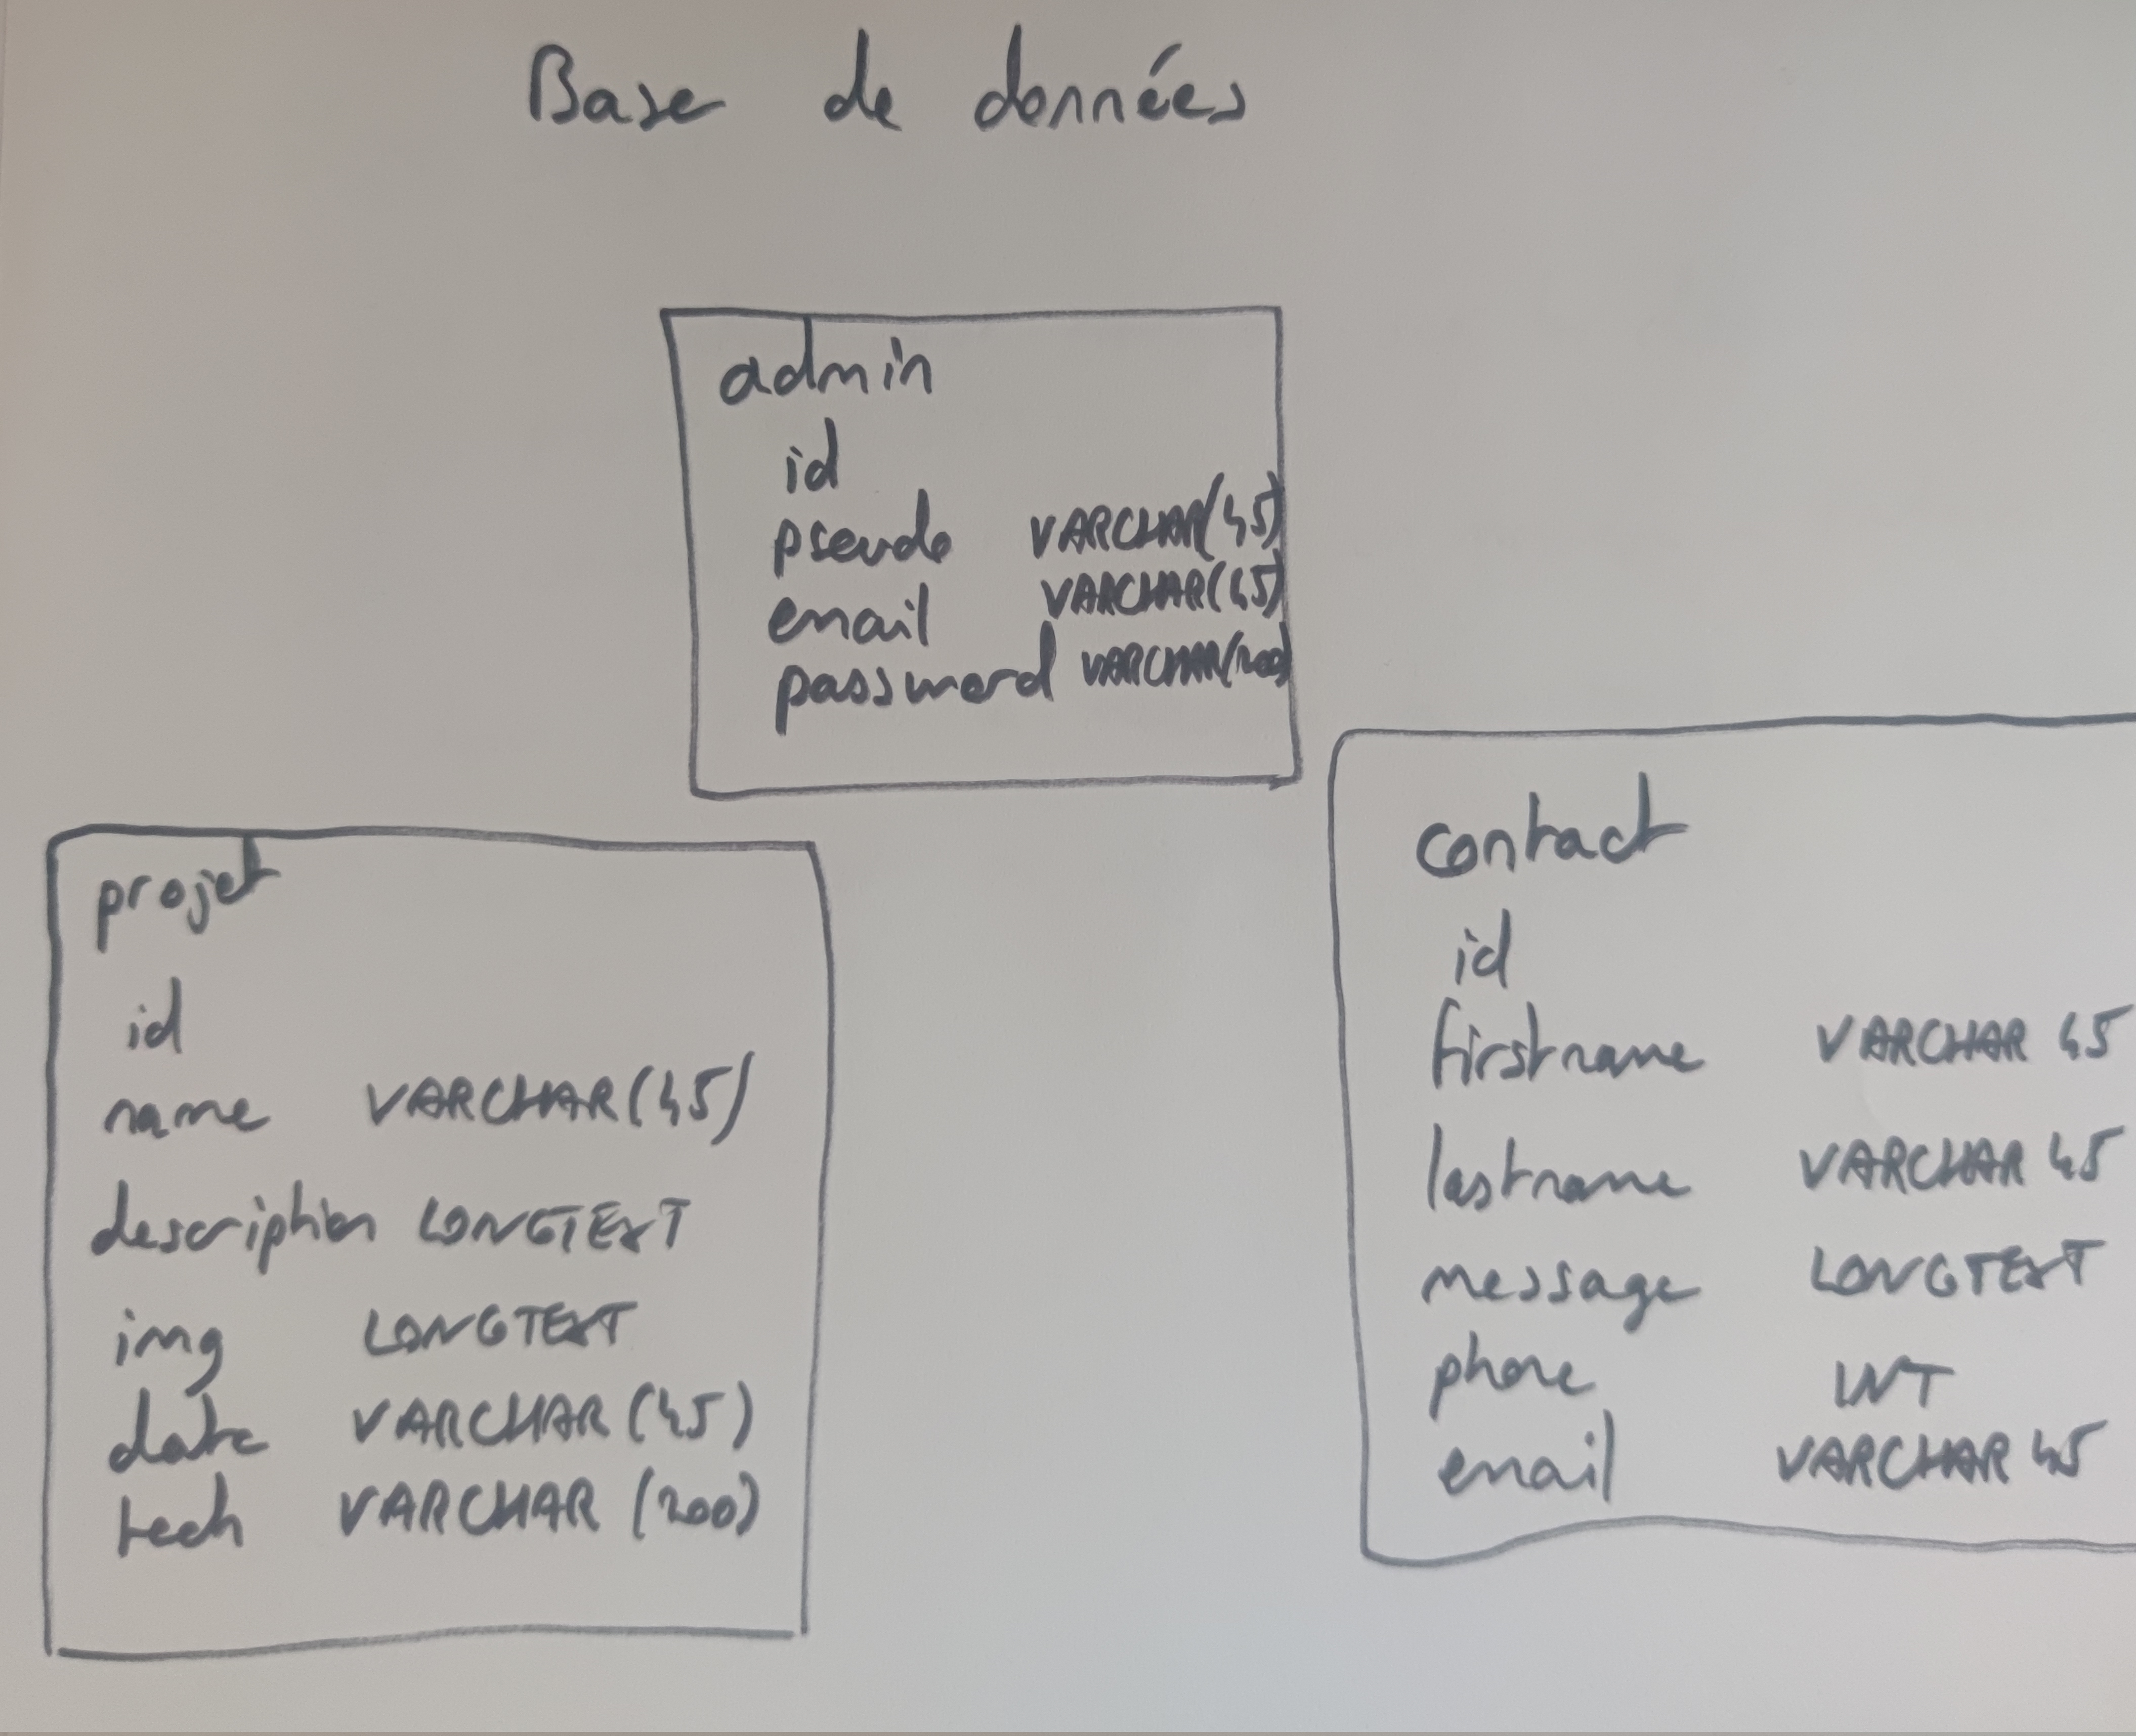 Base de données
admin
id
pseudo VARCHAR(45)
email VARCHAR(45)
password VARCHAR(200)
projet
id
name VARCHAR(45)
description LONGTEXT
img LONGTEXT
date VARCHAR (45)
tech VARCHAR (200)
contact
id
firstname VARCHAR 45
lastname VARCHAR 45
message LONGTEXT
phone INT
email VARCHAR 45